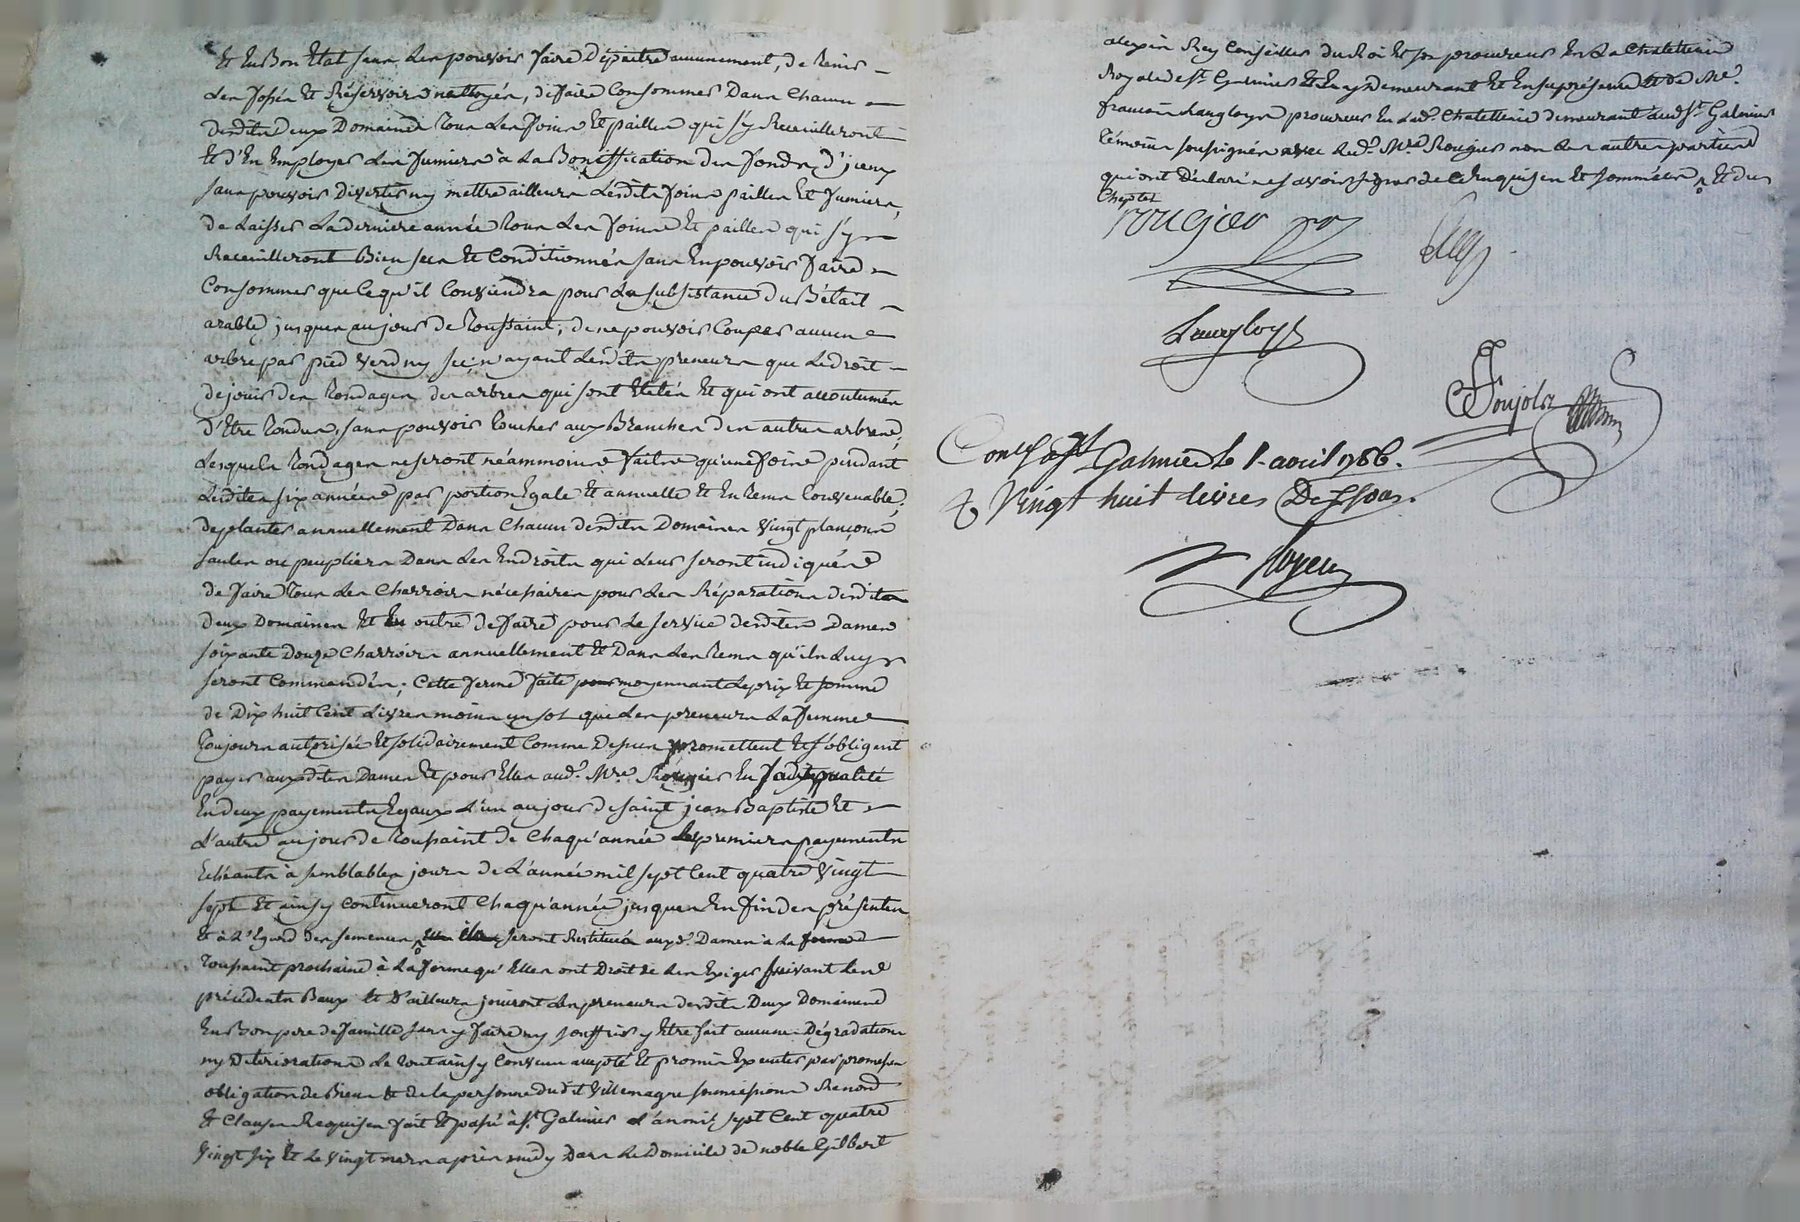 Et En Bon Etat sans Les pouvoir faire Depaitre aucunement, de tenir
Les fossés Et Réservoirs nettoyés, de faire Consommer Dans Chacun
desdits deux Domaines tous Les foins Et pailles qui s'y Receuilleront
Et d'En Employer Les fumiers à La Bonification des fonds d'jceux
sans pouvoir Divertir ny mettre ailleurs Lesdits foins pailles Et fumiers,
de Laisser La derniere année tous Les foins Et pailles qui s'y
Receuilleront Bien secs Et Conditionnés sans En pouvoir faire
Consommer que Ce qu'il Conviendra pour La subsistance du Bétail
arable, jusques au jour de Toussaint, de ne pouvoir Couper aucun
arbre par pied verd ny sec, n'ayant Lesdits preneurs que Le droit
de jouir des tondages des arbres qui sont Etetés Et qui ont accoutumés
d'Etre tondus, sans pouvoir toucher aux Branches des autres arbres,
Lesquels tondages ne seront néammoins faits qu'une fois pendant
Lesdites six années par portion Egale Et annuelle Et En tems Convenable,
de planter annuellement Dans Chacun desdits Domaines vingt plançons
saules ou peupliers Dans Les Endroits qui Leur seront indiqués
de faire tous Les Charrois nécessaires pour Les Réparations desdits
deux Domaines Et En outre de faire pour Le service desdites Dames
soixante Douze Charrois annuellement Et Dans Les tems qu'ils Luy
seront Commandés; Cette ferme faite pour moyennant Le prix Et somme
de Dix huit Cent Livres moins un sol que Les preneurs La femme
toujours autorisée Et solidairement Comme Dessus promettent Et s'obligent
payer auxdites Dames Et pour Elles aud. Mre Rougier En sadite qualité
En deux payements Egaux L'un au jour de saint jean Baptiste Et
L'autre au jour de toussaint de Chaqu'année Les premiers payements
Echéants à semblables jours de L'année mil sept Cent quatre vingt
sept Et ainsy Continueront Chaqu'année jusques En fin des présentes
Et à L'Egard des semences ils seront Restitués auxd. Dames à La forme
toussaint prochaine à La forme qu'Elles ont Droit de Les Exiger suivant Les
précédents Baux Et D'ailleurs jouiront Les preneurs desdits Deux Domaines
En Bon pere de famille sans y faire ny souffrir y Etre fait aucunes Dégradations
ny Deteriorations Le tout ainsy Convenu accepté Et promis Executer par promesses
obligation de Biens Et de La personne dudit Villemagne soumissions Renond
Et Clauses Requises fait Et passé à St. Galmier L'an mil sept Cent quatre
vingt six Et Le vingt mars après midy Dans Le Domicile de noble Gilbert
alexis Rey Conseiller du Roi Et son procureur En La Chatellenie
Royale de St. Galmier Et En y Demeurant Et En sa présence Et de Me.
françois Langloys procureur En Lad. Chatellenie demeurant aud St. Galmier
témoins soussignés avec Led. Mre Rougier non Les autres parties
qui ont Déclaré ne savoir signer de Ce Enquises Et sommées Et du
Cheptel
rougier
Rey
Langloys
Ponjols
Conlé à St Galmier le 1. avril 1786.
R Vingt huit livres Dix sols.
Noyer